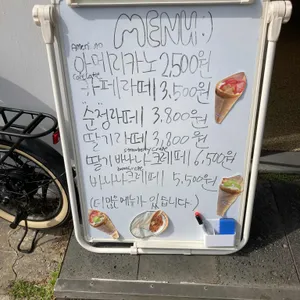 MENU :)
아메리카노 2,500원
카페라떼 3,500원
순정라떼 3,800원
딸기라떼 3,800원
딸기 바나나크레페 6,500원
바나나크레페 5,500원
(더 많은 메뉴가 있습니다)